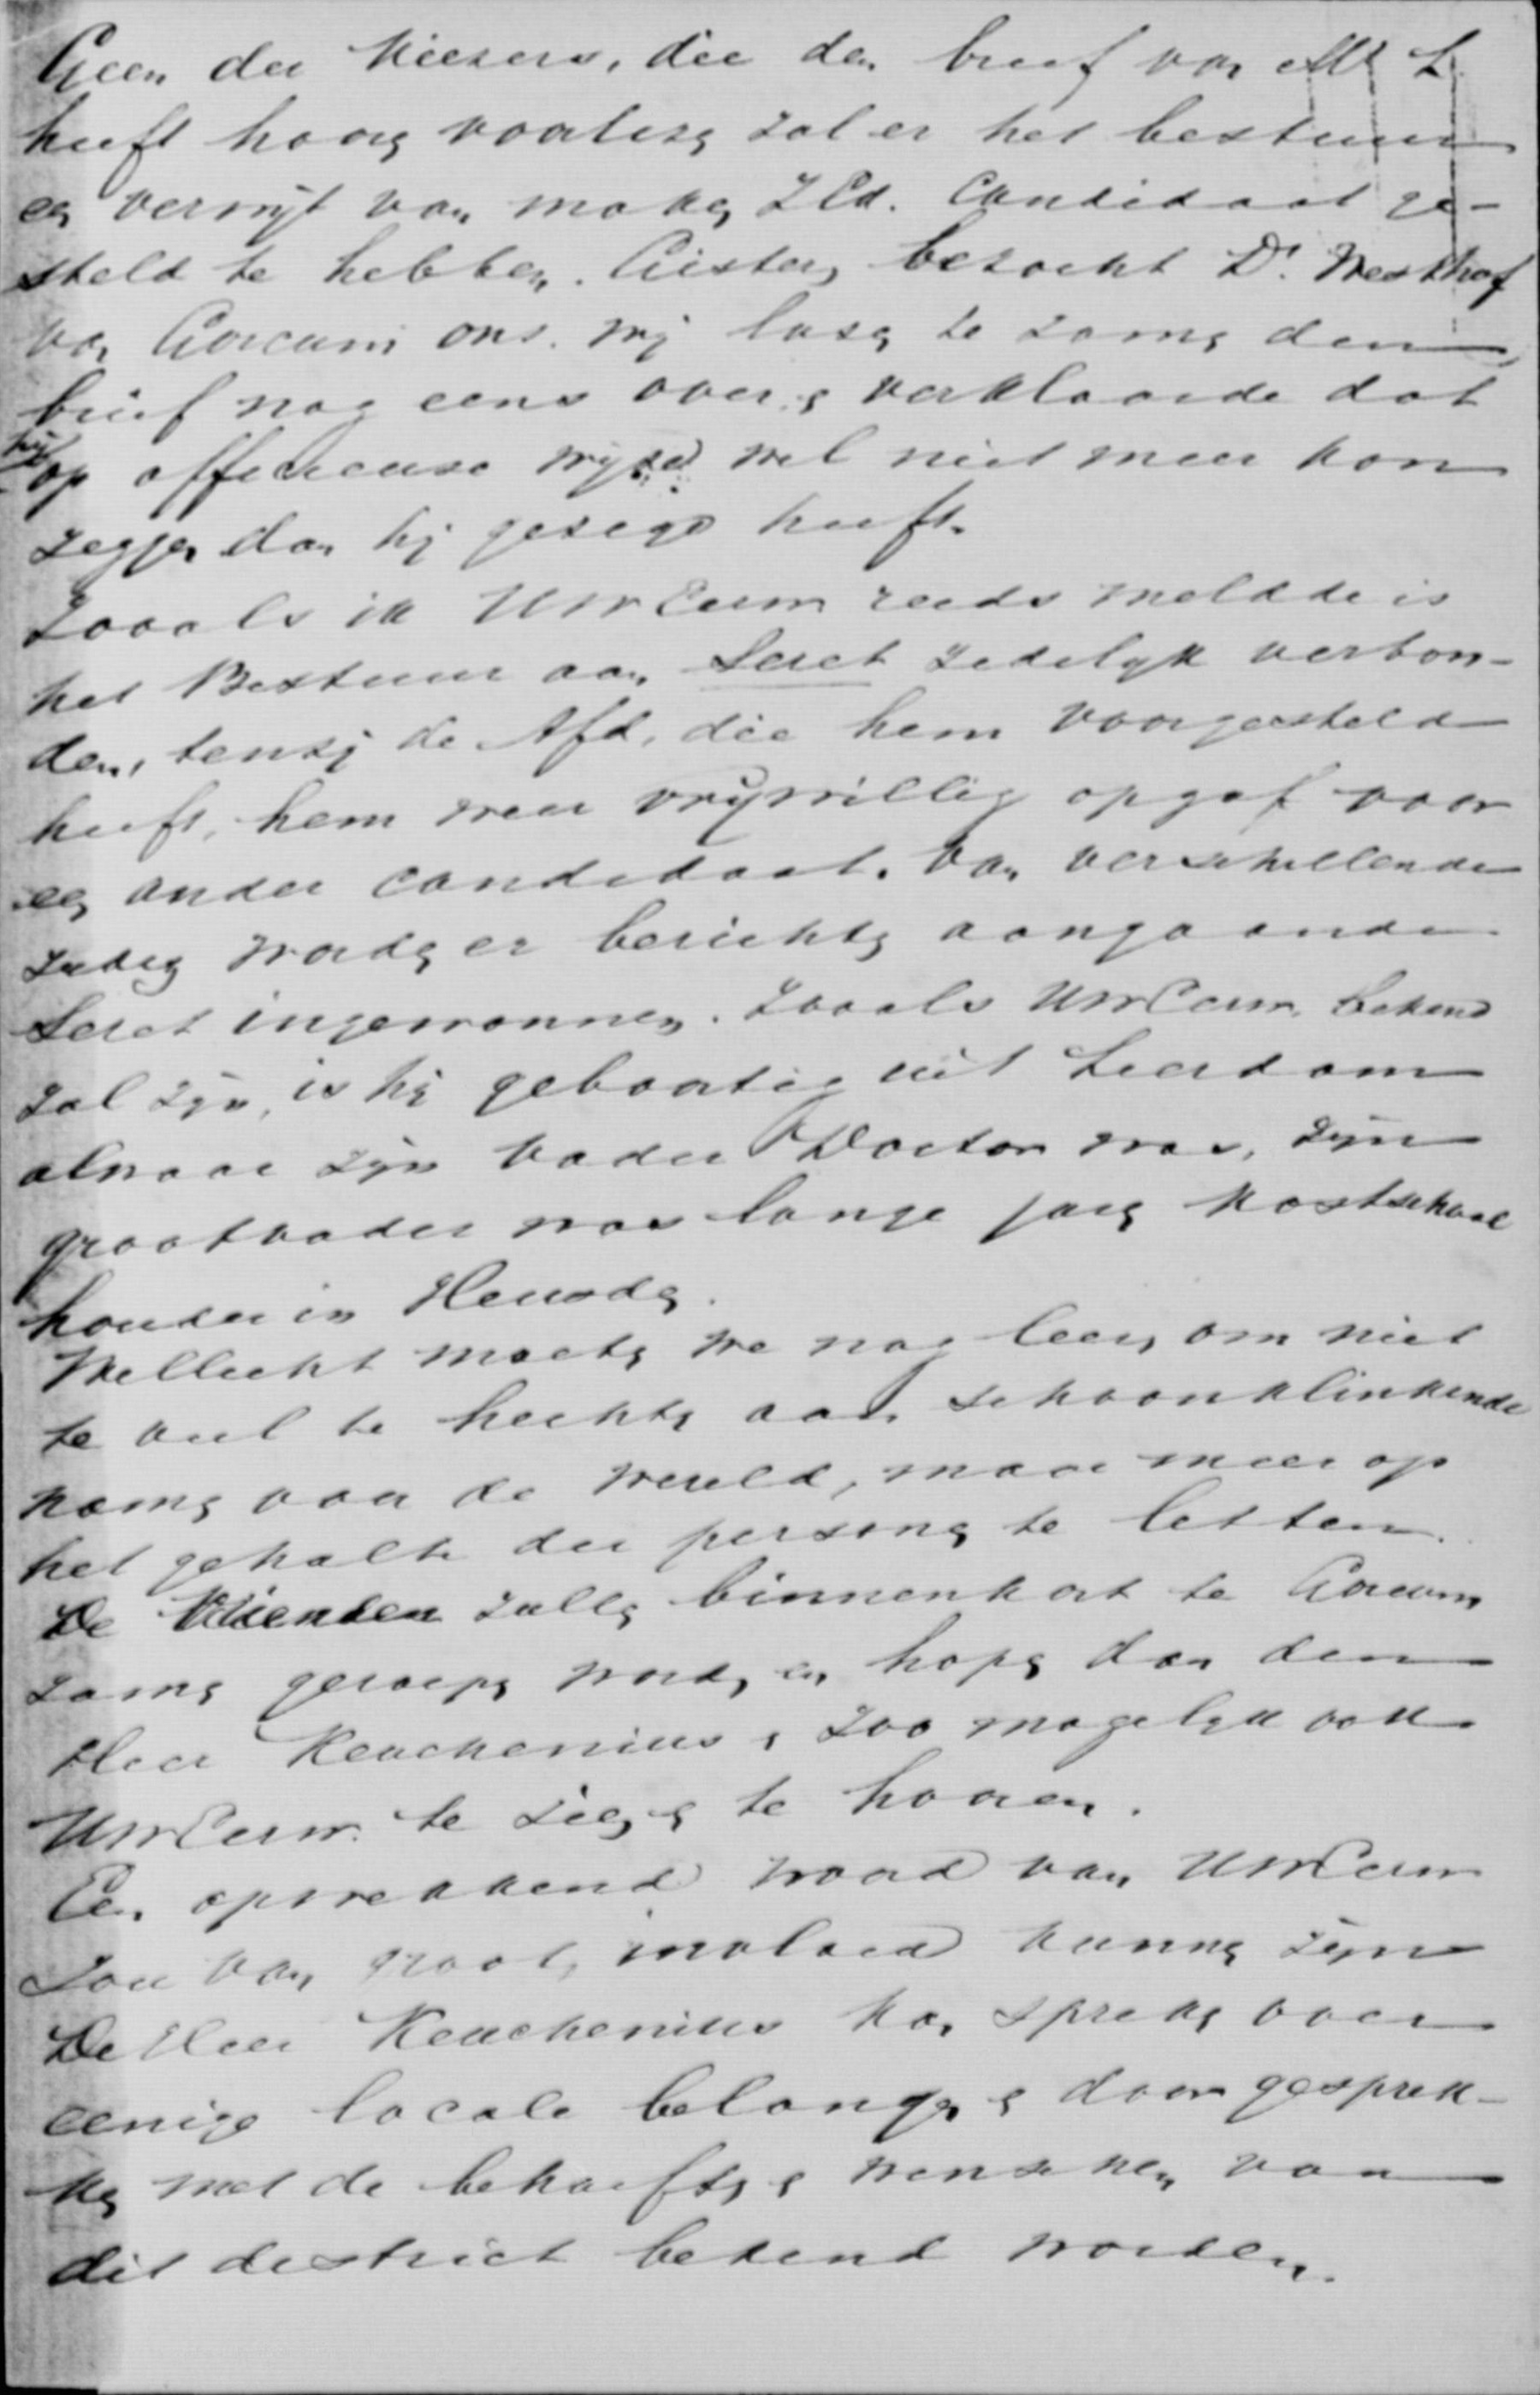 Geen der Kiezers, die den brief van Mr L
heeft hooren voorlezen zal er het bestuur
een verwijt van maken ZEd. Candidaat ge-
steld te hebben. Gisteren bezocht Dr. Westhof
van Gorcum ons. wij lazen te zamen den
brief nog eens over en verklaarde dat
hij op officieuse wijze wel niet meer kon
zeggen dan hij gezegd heeft.
Zooals ik UwEerw reeds meldde is
het Bestuur aan Seret zedelijk verbon-
den, tenzij de Afd, die hem voorgesteld
heeft, hem weer vrijwillig opgaf voor
een ander candidaat. Van verschillende
zeden worden er berichten aangaande
Seret ingewonnen. Zooals UwEerw. bekend
zal zijn, is hij geboortig uit Leerdam
alwaar zijn vader Doctor was, zijn
grootvader was lange jaren kostschool
houder in Heusden.
Wellicht moeten we nog leeren om niet
te veel te hechten aan schoonklinkende
namen voor de wereld, maar meer op
het gehalte der personen te letten.
De Vrienden zullen binnenkort te Gorcum
zamen geroepen worden en hopen dan den
Heer Keuchenius, zoo mogelijk ook
UwEerw. te zien en te hooren.
Een opwekkend woord van UwEerw
zou van groot invloed kunnen zijn
De Heer Keuchenius kan spreken over
eenige locale belangen en door gesprek-
ken met de behoeften en wenschen van
dit district bekend worden.